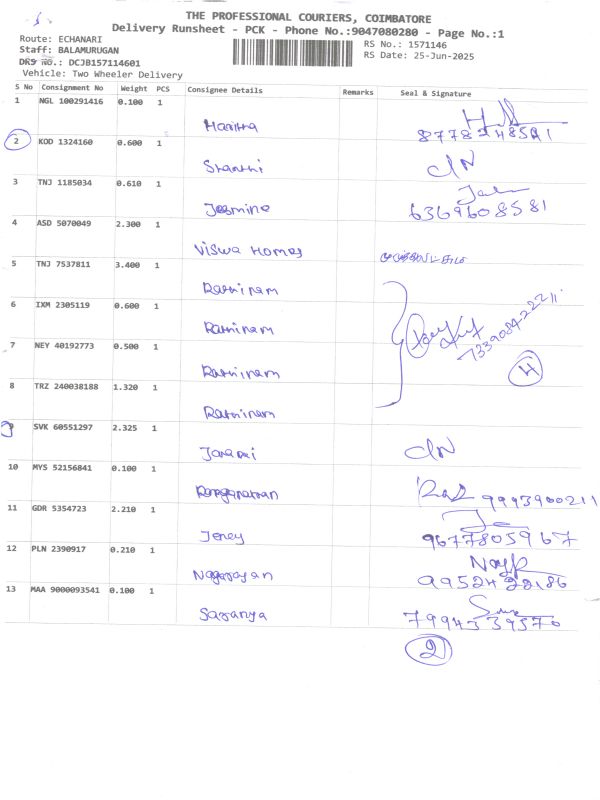 THE PROFESSIONAL COURIERS, COIMBATORE
Delivery Runsheet - PCK - Phone No.:9047080280 - Page No.:1
Route: ECHANARI
Staff: BALAMURUGAN
DRS NO.: DCJB157114601
Vehicle: Two Wheeler Delivery
RS No.: 1571146
RS Date: 25-Jun-2025
S No Consignment No Weight PCS Consignee Details Remarks Seal & Signature
1 NGL 100291416 0.100 1
Haritha 8778248521
2 KOD 1324160 0.600 1
Shanthi
3 TNJ 1185034 0.610 1
Jasmine 6369608581
4 ASD 5070049 2.300 1
Viswa Homes
5 TNJ 7537811 3.400 1
Rathinam
6 IXM 2305119 0.600 1
Rathinam
7 NEY 40192773 0.500 1
Rathinam
4
8 TRZ 240038188 1.320 1
Rathinam
9 SVK 60551297 2.325 1
10 MYS 52156841 0.100 1
Ranganathan 9993900211
11 GDR 5354723 2.210 1
Jeney 9677805967
12 PLN 2390917 0.210 1
Nagarajan 9952422186
13 MAA 9000093541 0.100 1
Saranya 7994339570
2